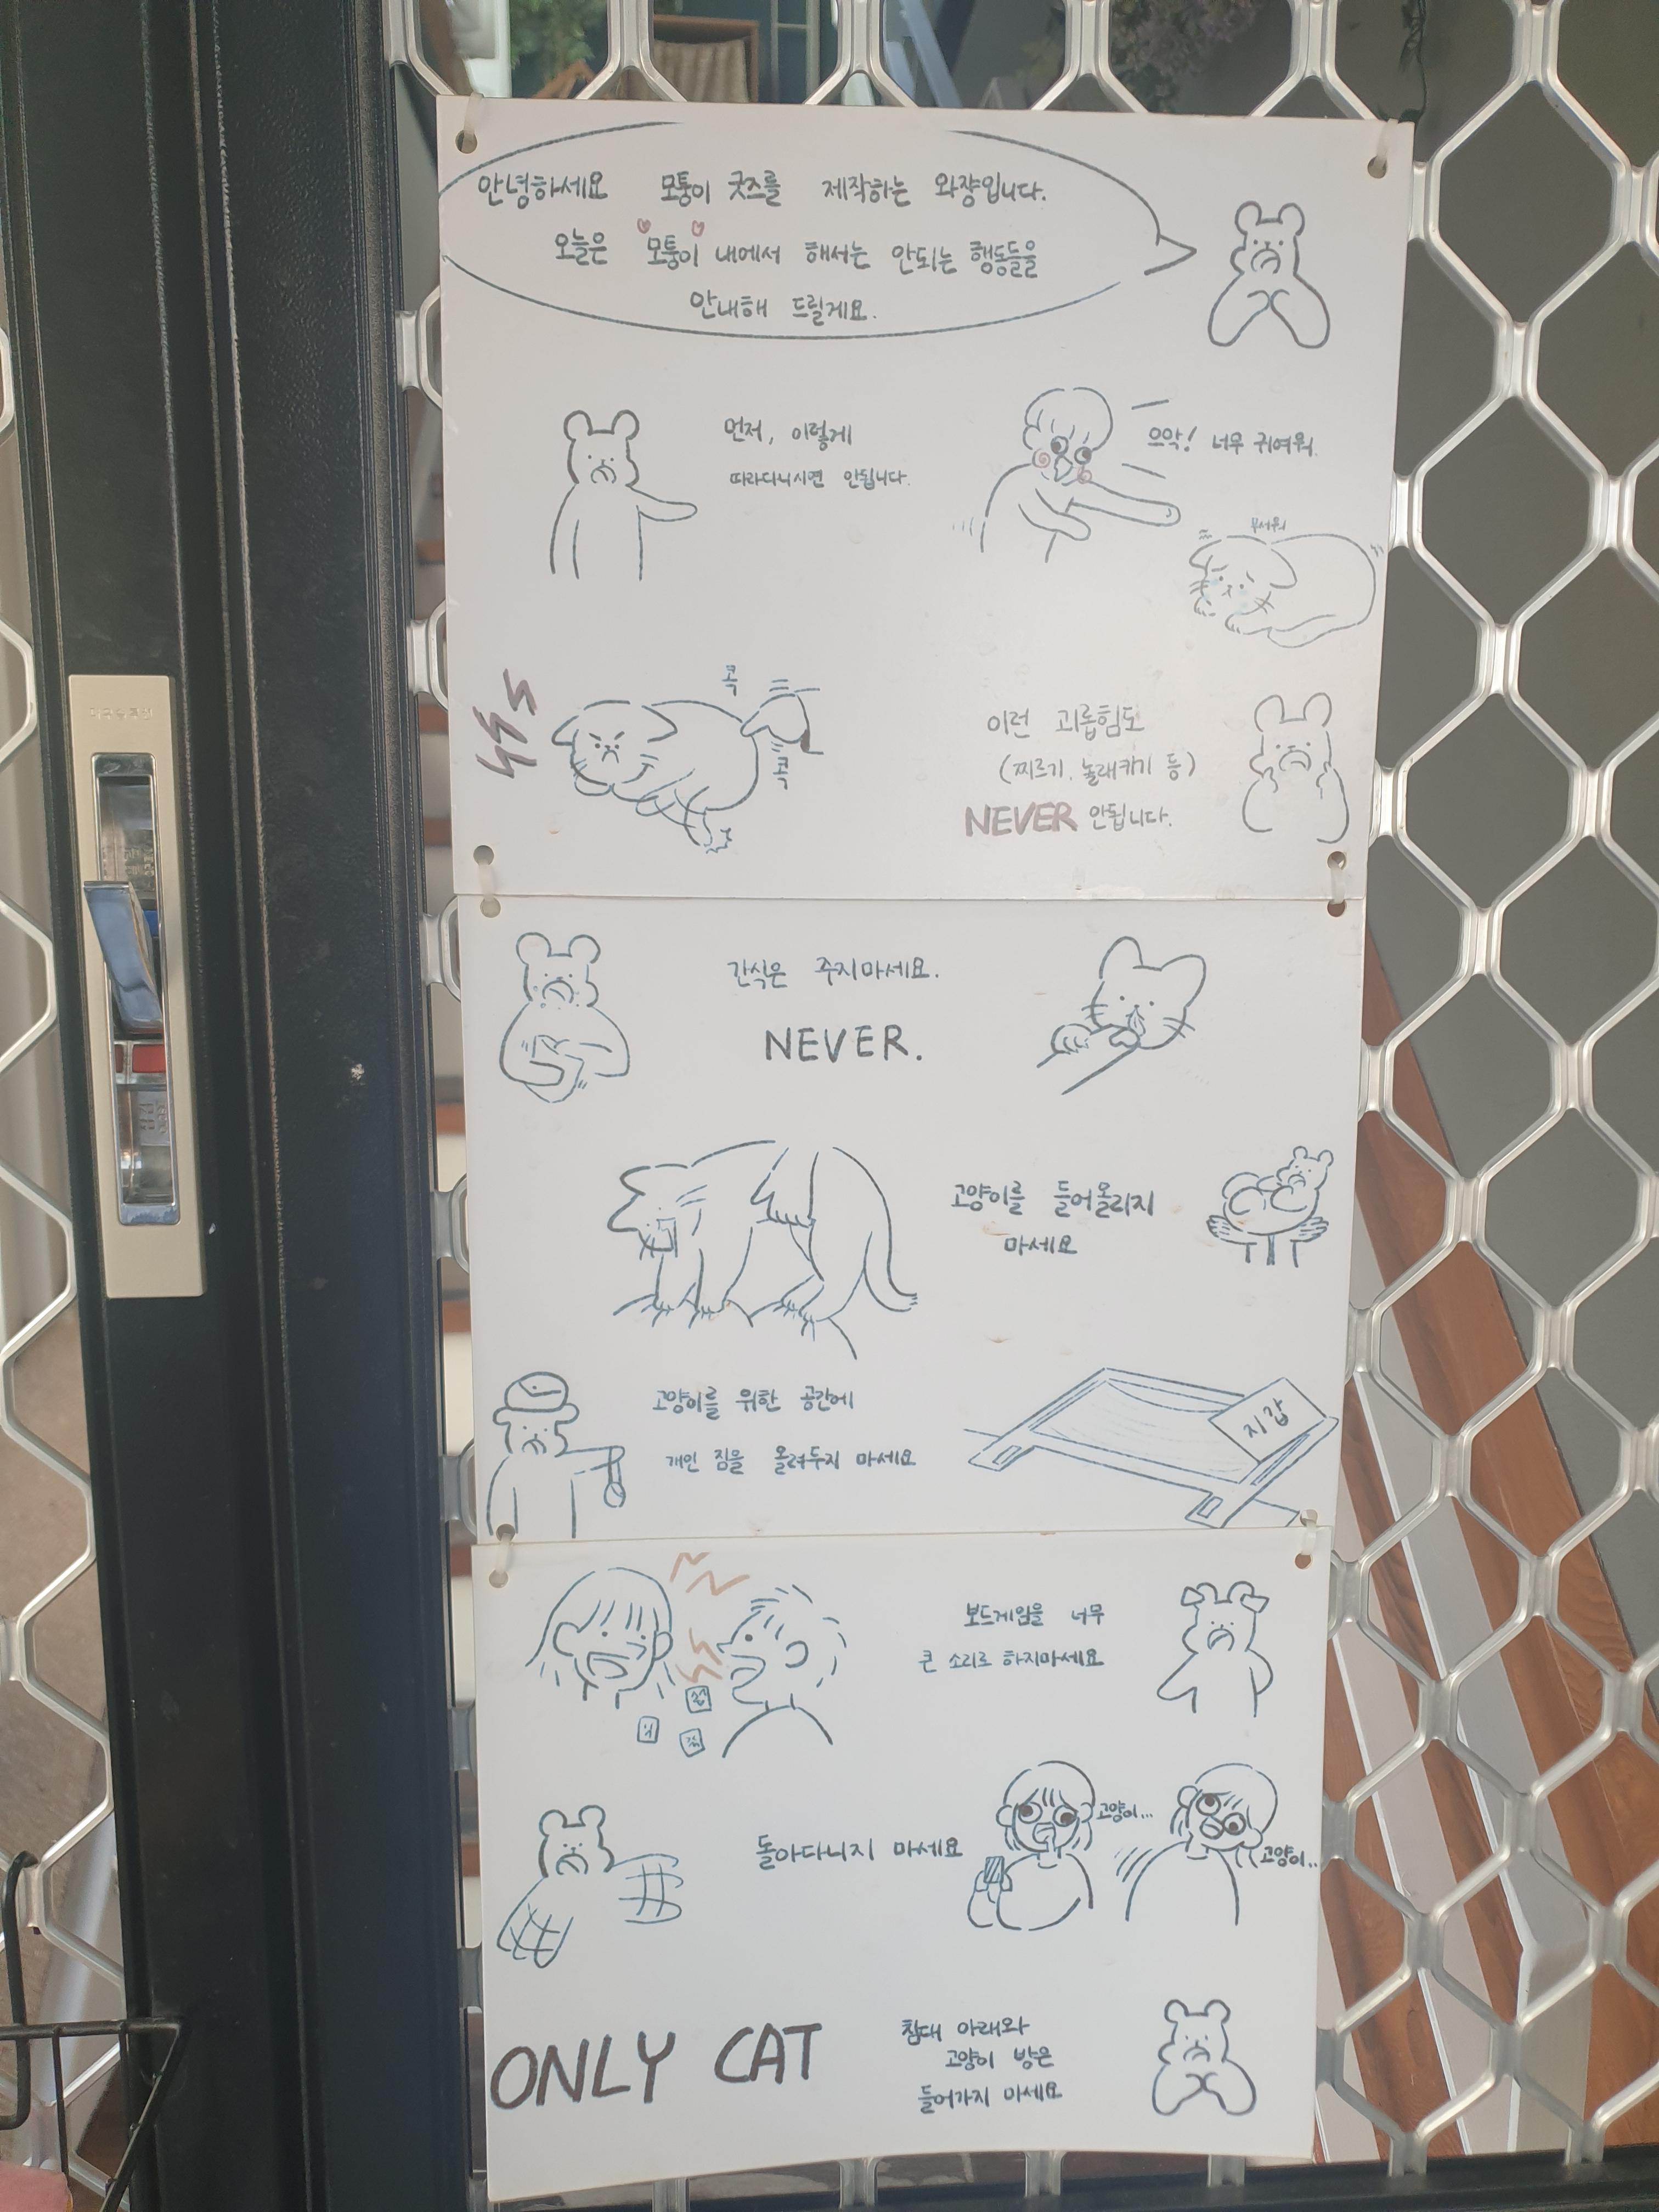 안녕하세요 모퉁이 굿즈를 제작하는 와쟝입니다.
오늘은 모퉁이 내에서 해서는 안되는 행동들을
안내해 드릴게요.
먼저, 이렇게
따라다니시면 안됩니다.
으악! 너무 귀여워.
무서워
콕
콕
이런 괴롭힘도
(찌르기, 놀래키기 등)
NEVER 안됩니다.
간식은 주지마세요.
NEVER.
고양이를 들어올리지
마세요
고양이를 위한 공간에
개인 짐을 올려두지 마세요
지갑
보드게임을 너무
큰 소리로 하지마세요
돌아다니지 마세요
고양이...
고양이..
ONLY CAT
침대 아래와
고양이 방은
들어가지 마세요